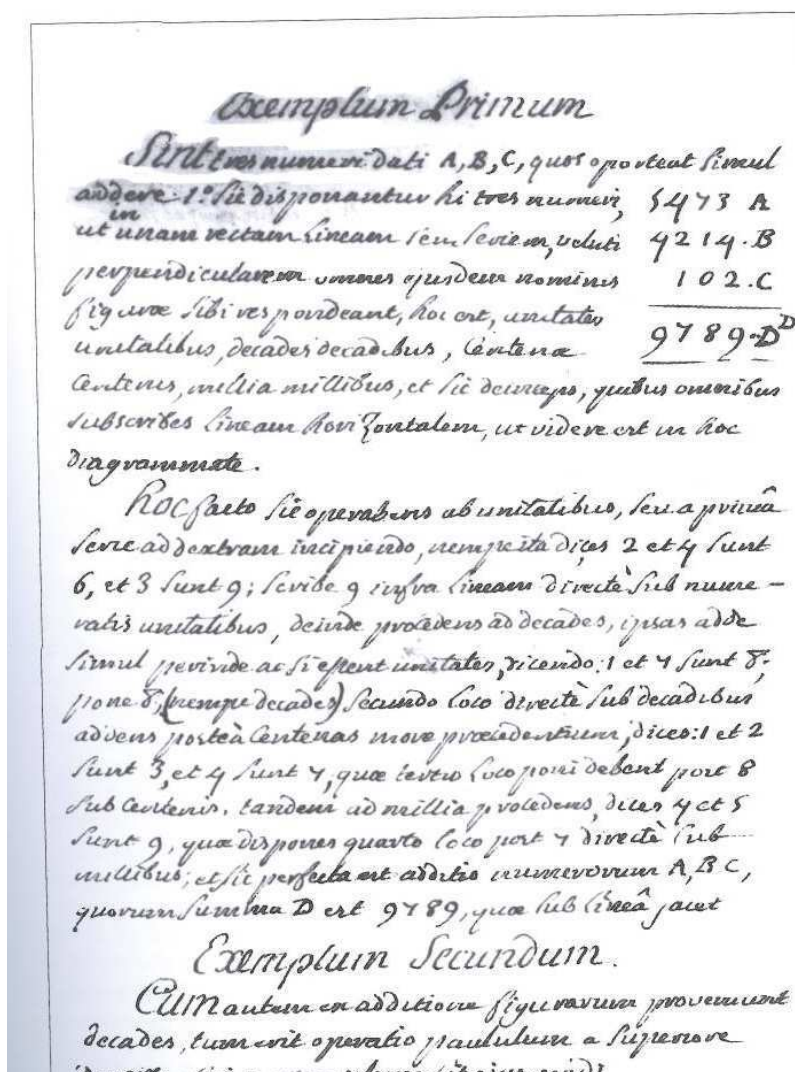 Exemplum Primum
Sint tres numeri dati A, B, C, quos oporteat simul
addere: 1.º sic disponantur hi tres numeri, 5473 A
in
ut unam rectam lineam seu seriem, veluti 4214. B
perpendicularem omnes ejusdem nominis 102. C
figuræ sibi respondeant, hoc est, unitates
unitatibus, decades decadibus, Centenæ 9789. D D
Centenis, millia millibus, et sic deinceps, quibus omnibus
subscribes lineam horizontalem, ut videre est in hoc
diagrammate.
Hoc facto sic operaberis ab unitatibus, seu a primâ
serie ad dextram incipiendo, nempe ita dices 2 et 4 sunt
6, et 3 sunt 9; scribe 9 infra lineam directè sub nume-
ratis unitatibus, deinde procedens ad decades, ipsas adde
simul perinde ac si essent unitates, dicendo: 1 et 7 sunt 8,
pone 8, (nempe decades) secundo loco directè sub decadibus
addens posteà Centenas more præcedentium, dices: 1 et 2
sunt 3, et 4 sunt 7, quæ tertio loco poni debent post 8
sub Centenis. tandem ad millia procedens, dices 4 et 5
sunt 9, quæ dispones quarto loco post 7 directè sub
millibus; et sic perfecta est additio numerorum A, B C,
quorum summa D est 9789, quæ sub lineâ jacet
Exemplum Secundum.
Cum autem ex additione figurarum proveniunt
decades, tum erit operatio paululum a superiore